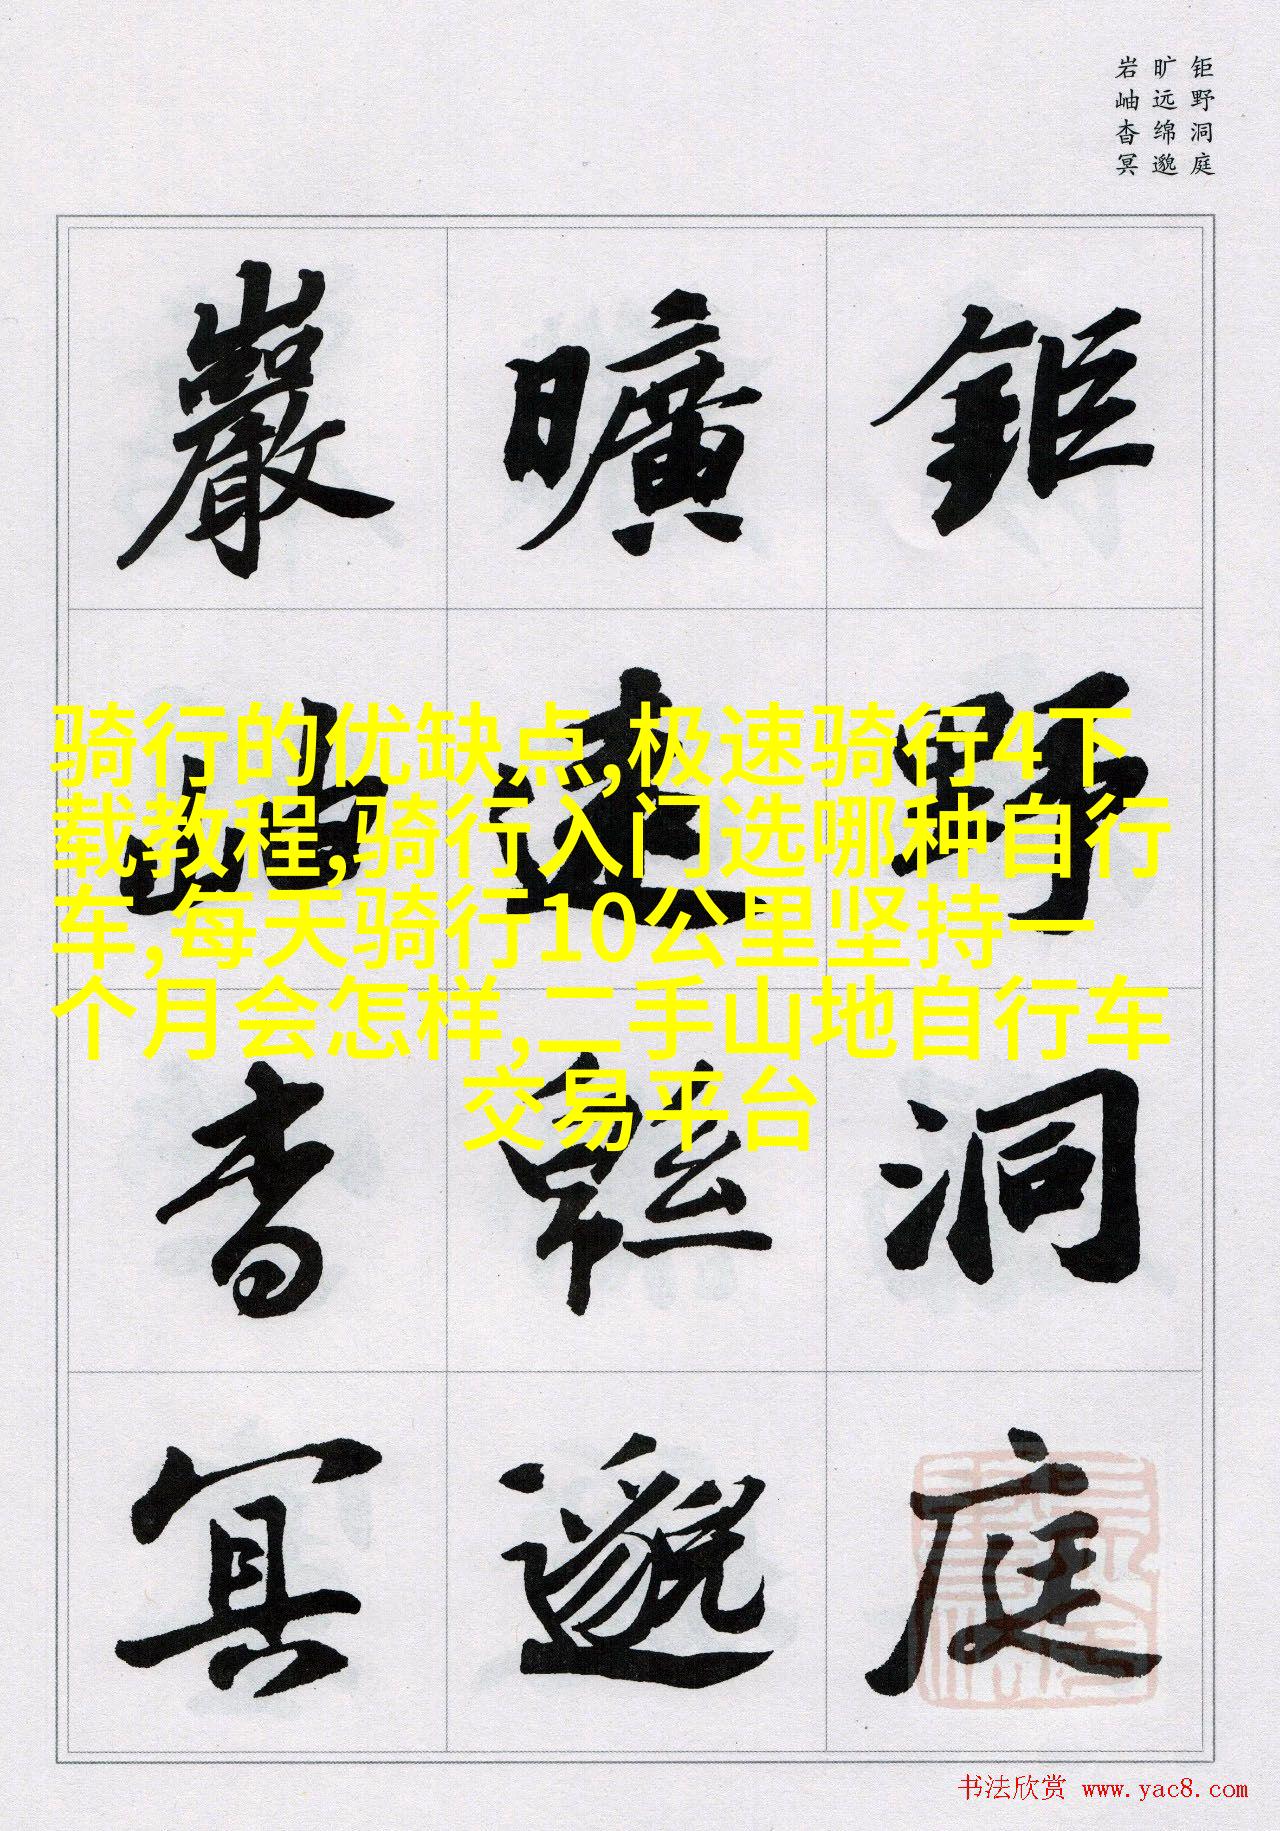 钜野洞庭
旷远绵邈
岩岫杳冥
鉅野洞庭
曠遠緜邈
巖岫杳冥
骑行的优缺点,极速骑行4下
载教程,骑行入门选哪种自行
车,每天骑行10公里坚持一
个月会怎样,二手山地自行车
交易平台
书法欣赏 www.yac8.com